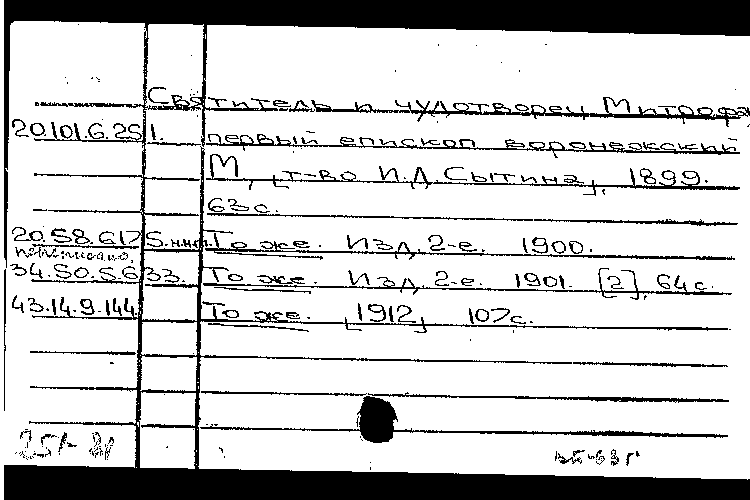 Святитель и чудотворец Митрофа
20.101.6.251. первый епископ воронежский
М, [т-во И.Д.Сытина], 1899.
63с.
20.58.617 То же. Изд. 2-е. 1900.
34.50.5.633. То же. Изд. 2-е. 1901. [2], 64с.
43.14.9.144 То же. [1912] 107с.